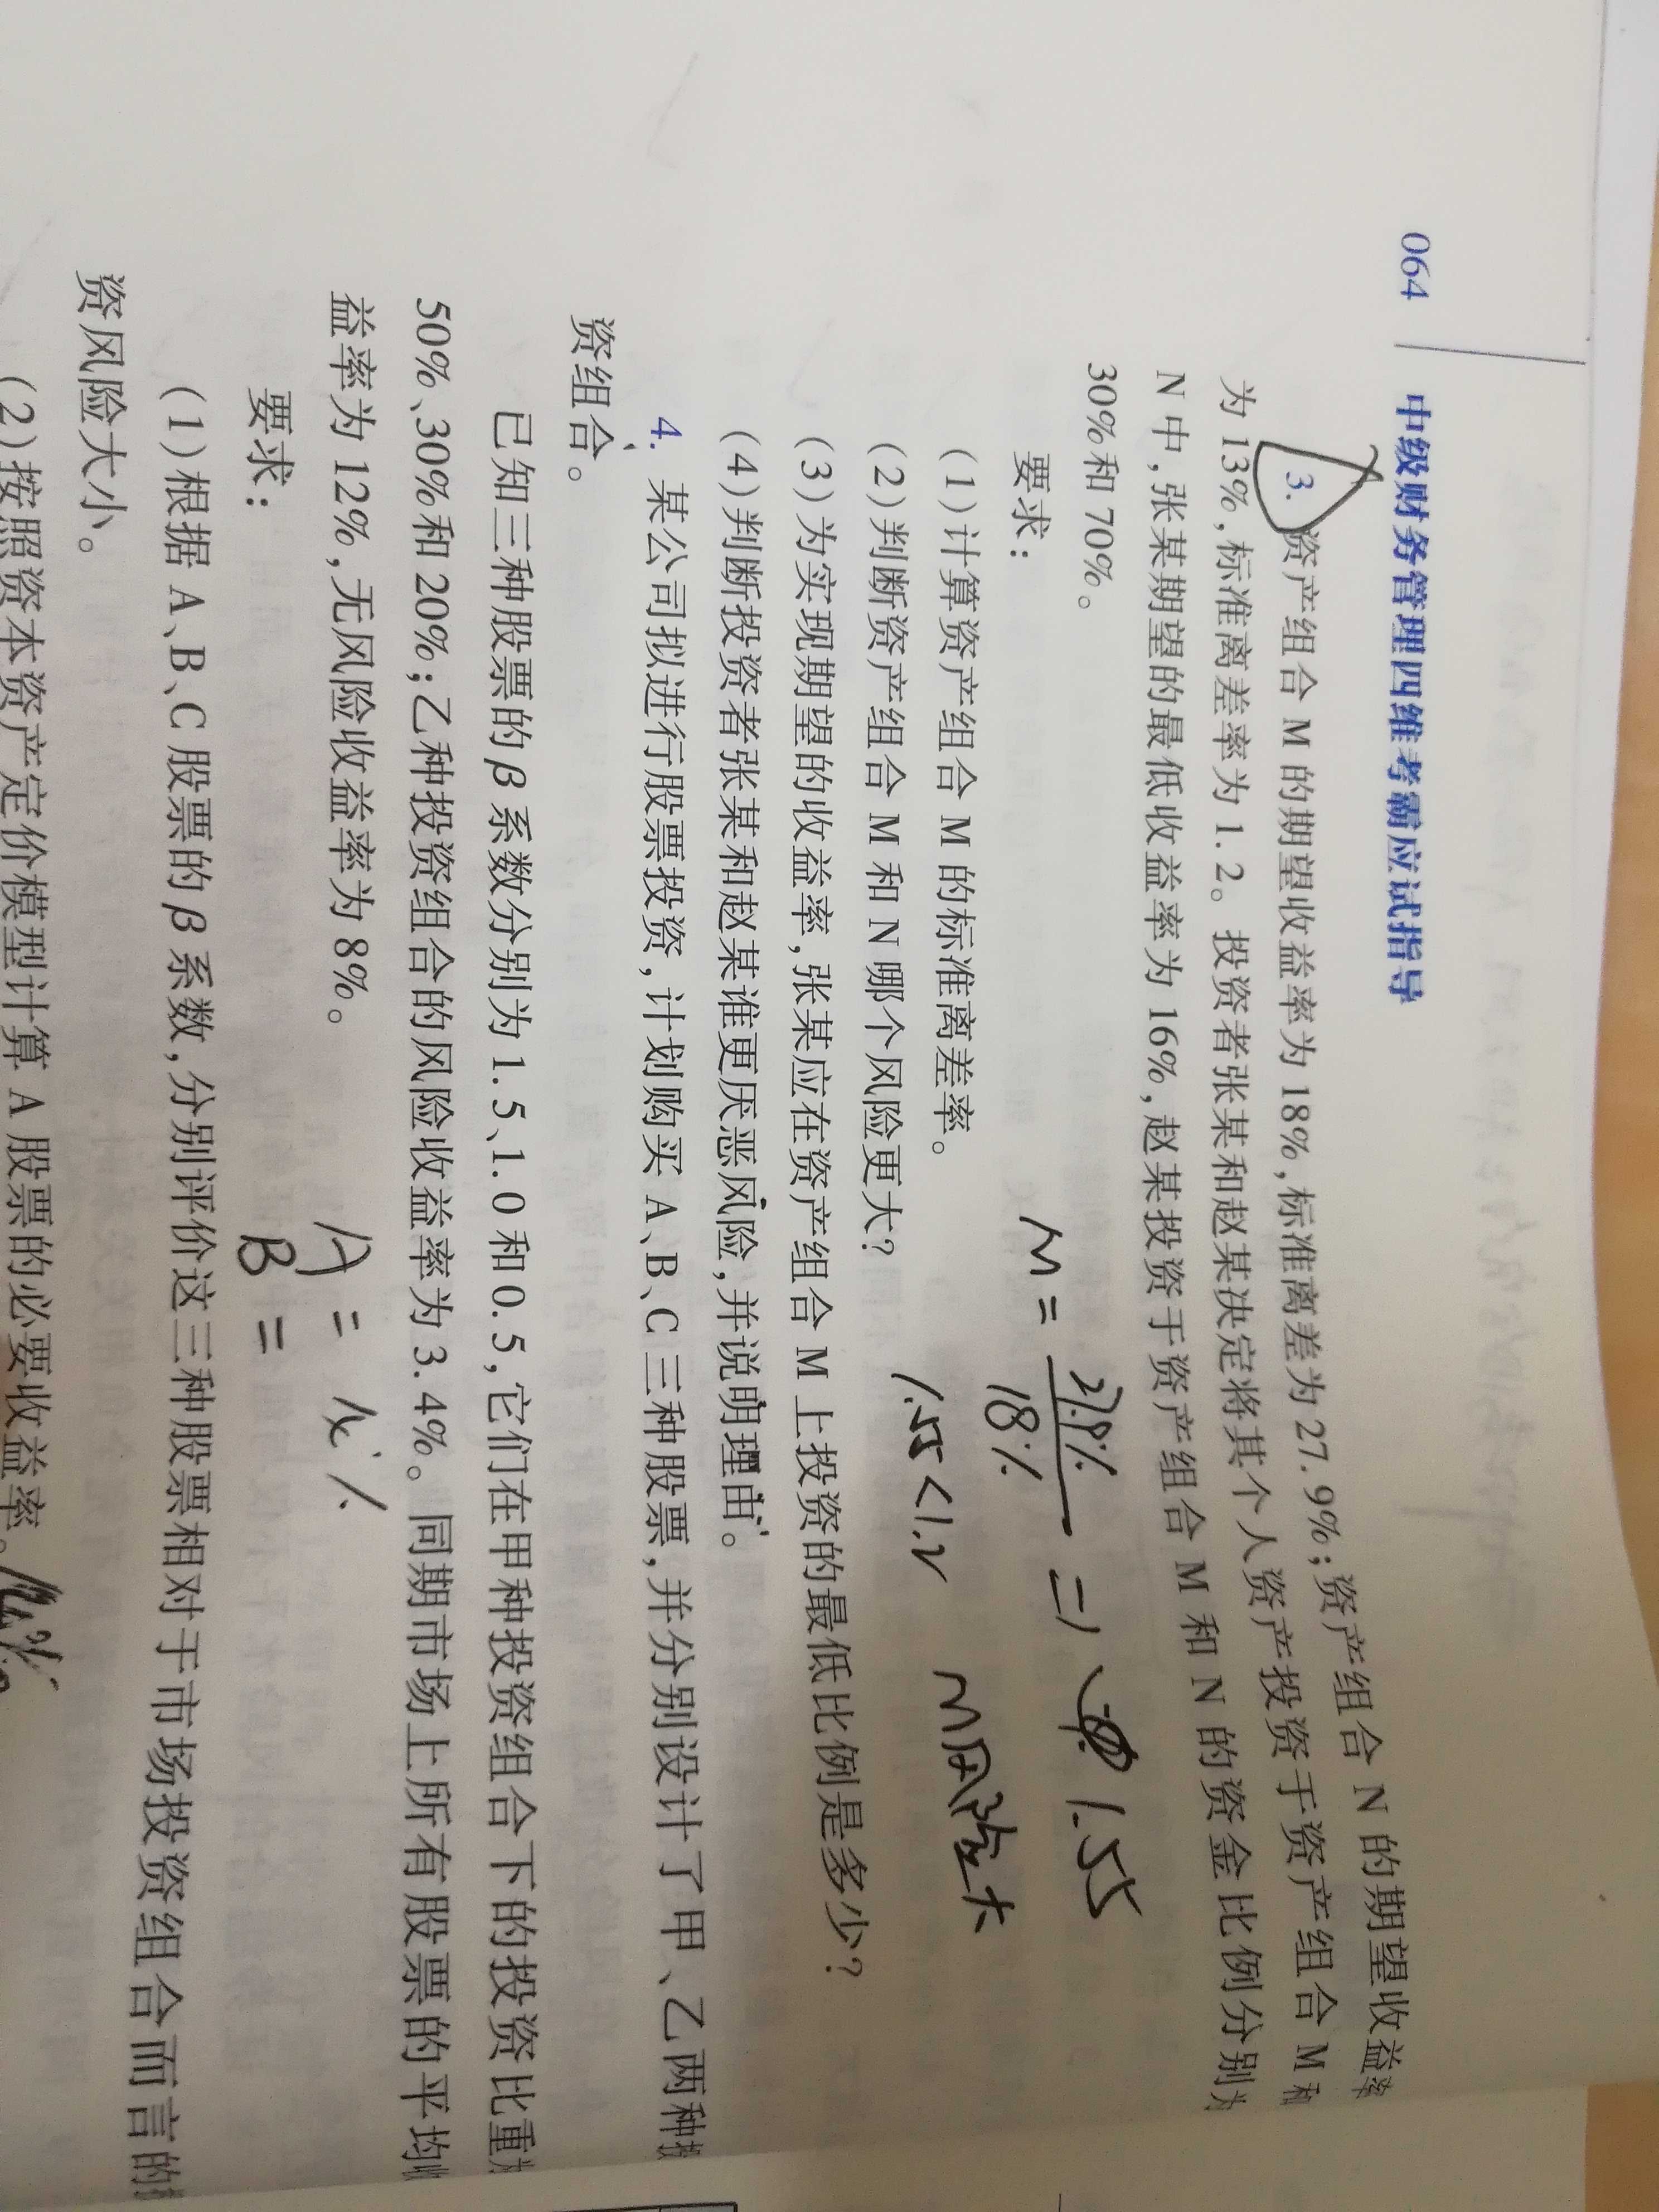 064 中级财务管理四维考霸应试指导
3. 资产组合 M 的期望收益率为 18%,标准离差为 27.9%;资产组合 N 的期望收益率
为 13%,标准离差率为 1.2。投资者张某和赵某决定将其个人资产投资于资产组合 M 和
N 中,张某期望的最低收益率为 16%,赵某投资于资产组合 M 和 N 的资金比例分别为
30%和 70%。
要求:
M = 27.9% / 18% = 1.55
(1)计算资产组合 M 的标准离差率。
(2)判断资产组合 M 和 N 哪个风险更大?
1.55<1.2 M风险大
(3)为实现期望的收益率,张某应在资产组合 M 上投资的最低比例是多少?
(4)判断投资者张某和赵某谁更厌恶风险,并说明理由。
4. 某公司拟进行股票投资,计划购买 A、B、C 三种股票,并分别设计了甲、乙两种投
资组合。
已知三种股票的 β 系数分别为 1.5、1.0 和 0.5,它们在甲种投资组合下的投资比重为
50%、30%和 20%;乙种投资组合的风险收益率为 3.4%。同期市场上所有股票的平均收
益率为 12%,无风险收益率为 8%。
A =
要求:
B =
(1)根据 A、B、C 股票的 β 系数,分别评价这三种股票相对于市场投资组合而言的投
资风险大小。
(2)按照资本资产定价模型计算 A 股票的必要收益率。